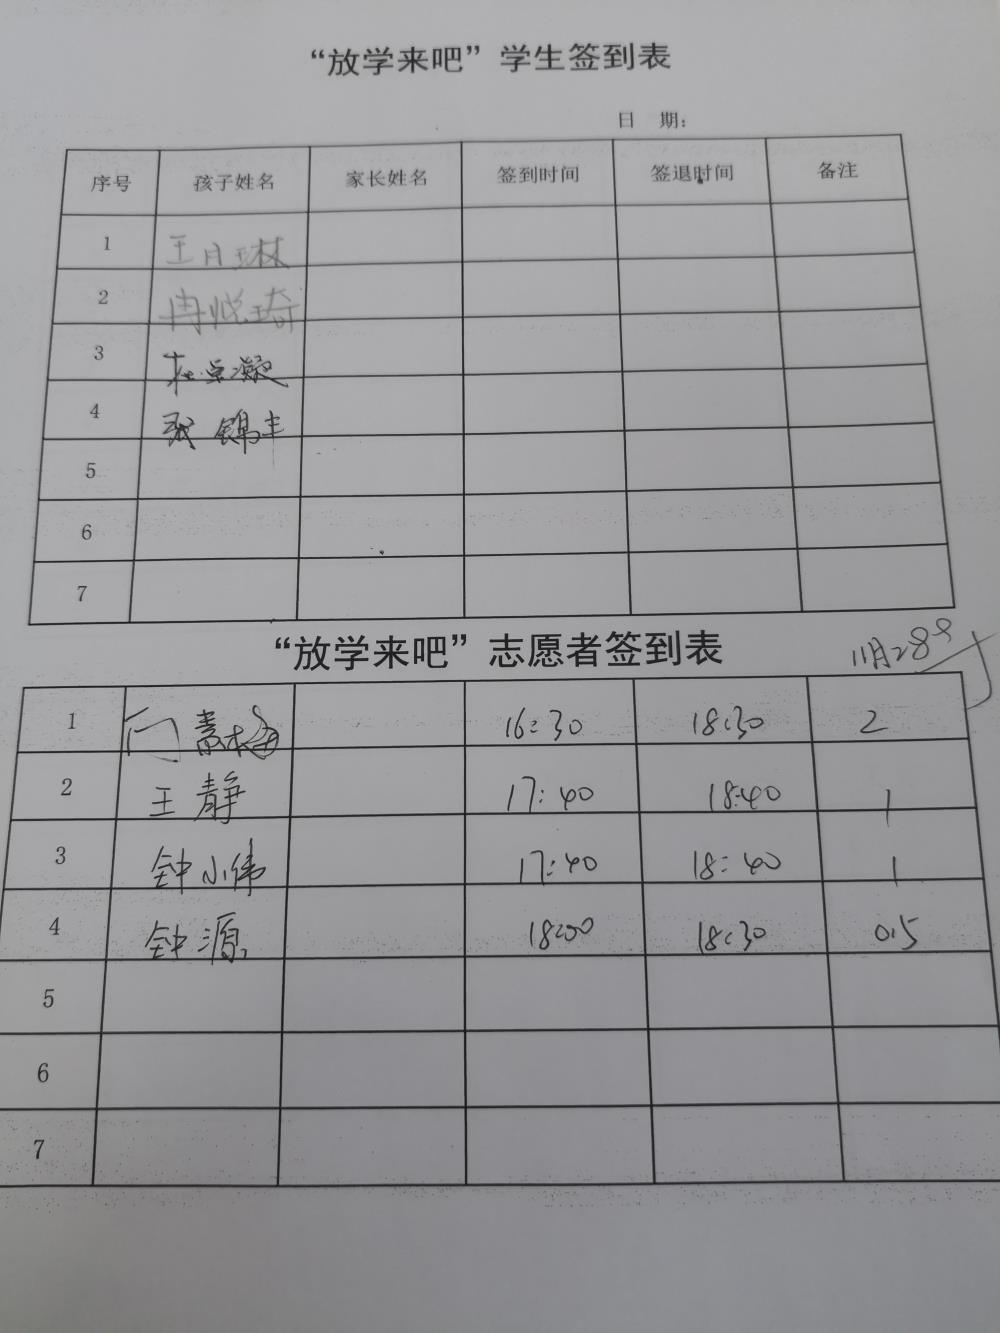 “放学来吧”学生签到表
日 期：
序号 孩子姓名 家长姓名 签到时间 签退时间 备注
1 王月琳
2 冉悦琦
3 杜卓凝
4 张锦丰
5
6
7
“放学来吧”志愿者签到表
11月28日
1 16:30 18:30 2
2 王静 17:40 18:40 1
3 钟小伟 17:40 18:40 1
4 钟源 18:00 18:30 0.5
5
6
7